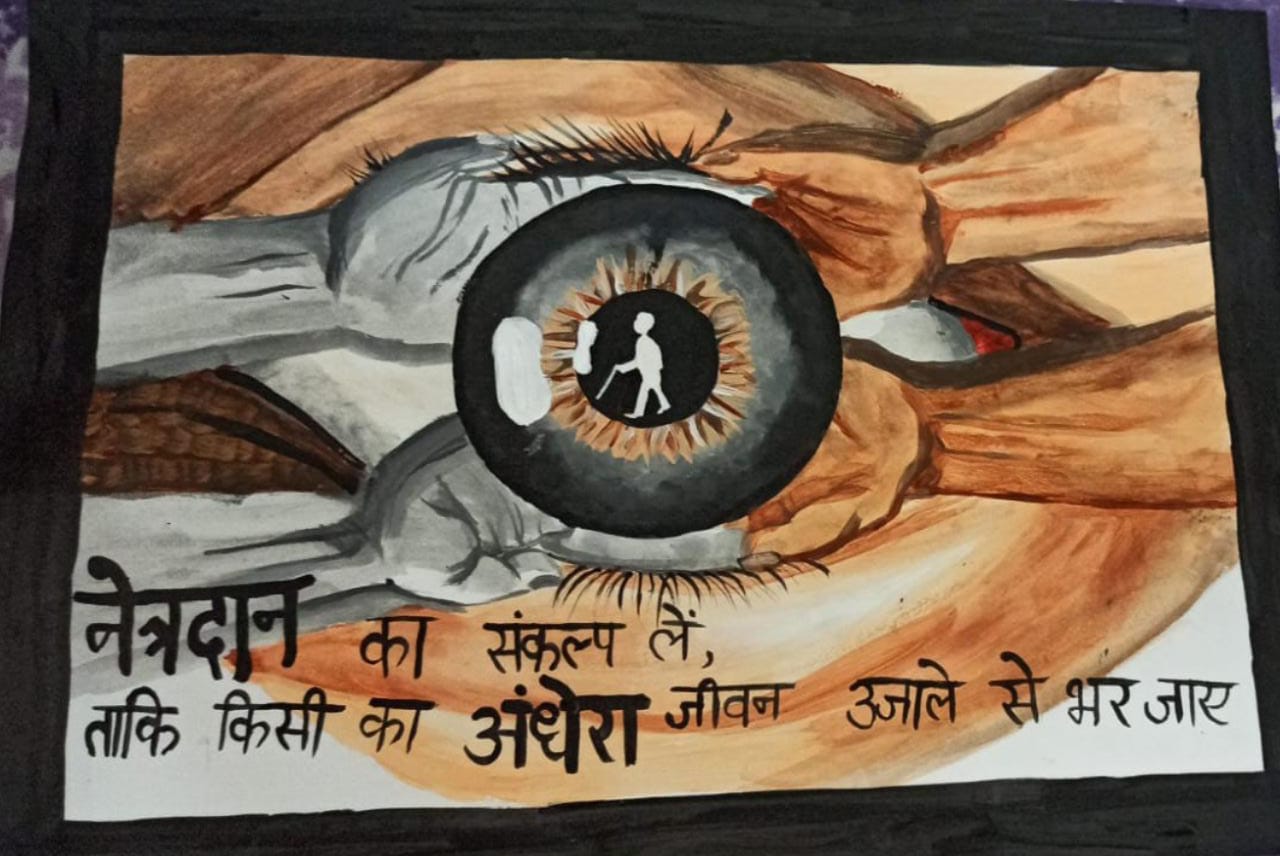 नेत्रदान का संकल्प लें,
ताकि किसी का अंधेरा जीवन उजाले से भर जाए